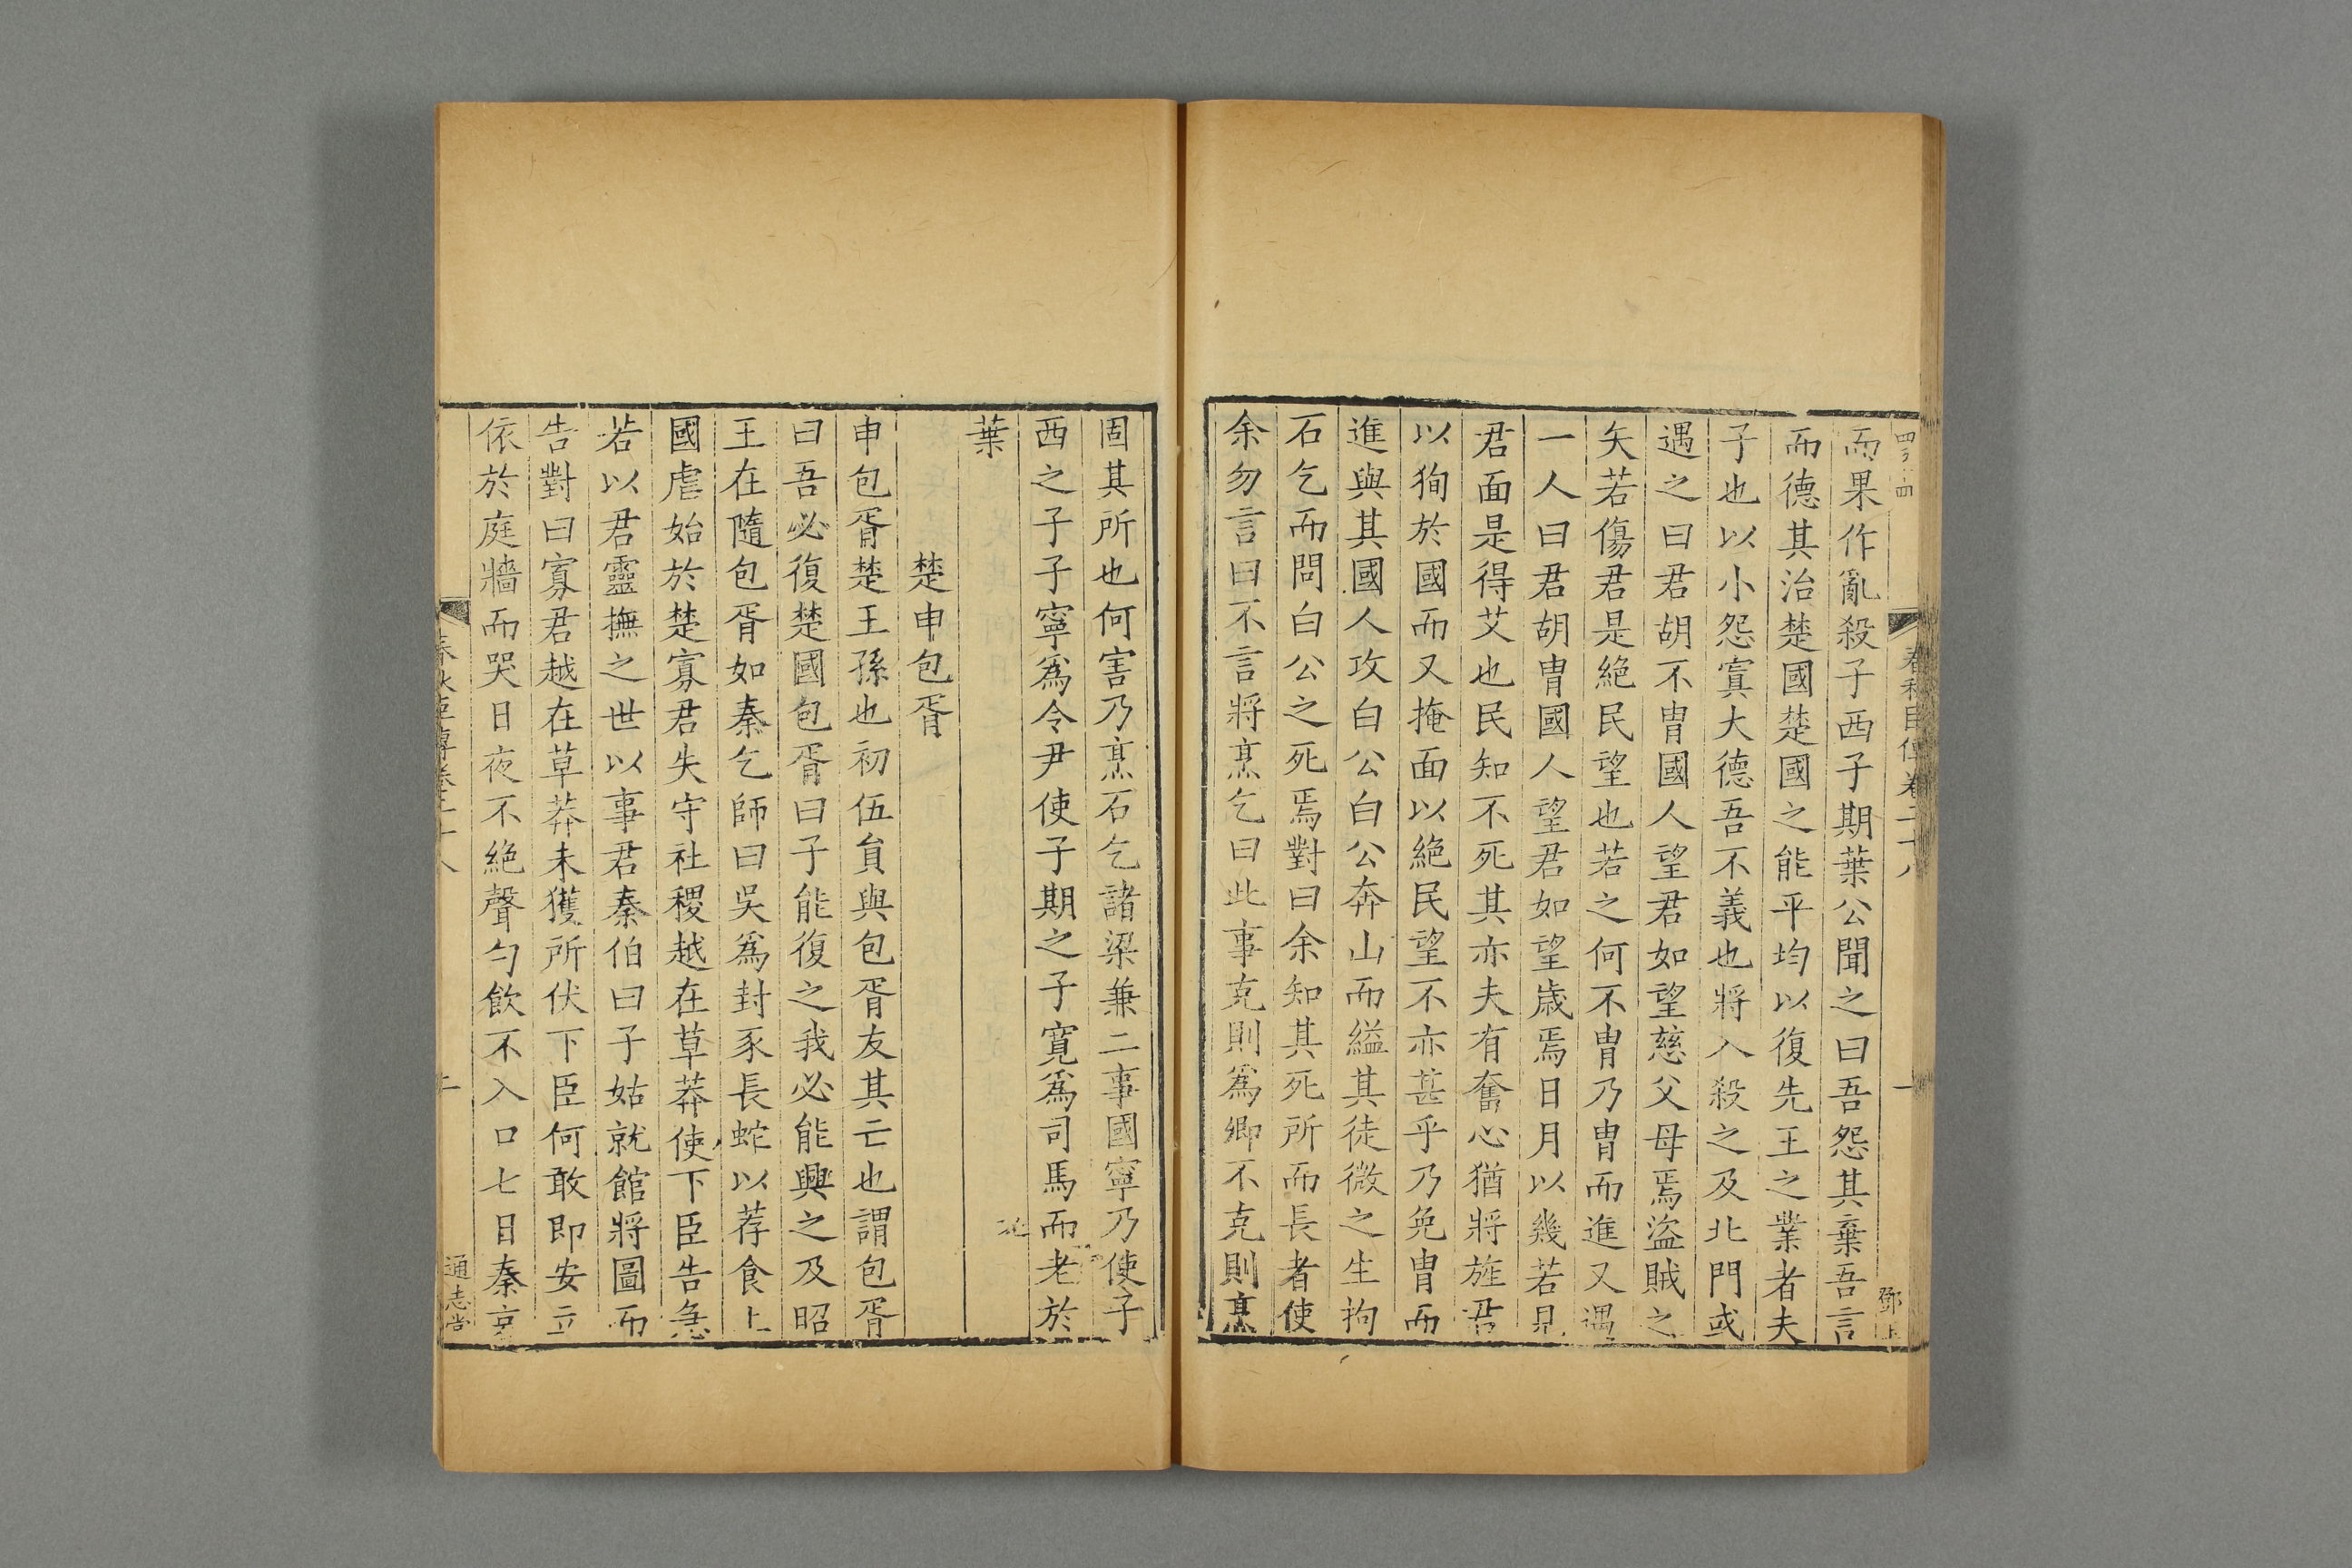 春秋臣傳卷二十八
而果作亂殺子西子期葉公聞之曰吾怨其棄吾言
而德其治楚國楚國之能平均以復先王之業者夫
子也以小怨寘大德吾不義也將入殺之及北門或
遇之曰君胡不冑國人望君如望慈父母焉盜賊之
矢若傷君是絕民望也若之何不冑乃冑而進又遇
一人曰君胡冑國人望君如望歲焉日月以幾若見
君面是得艾也民知不死其亦夫有奮心猶將旌君
以狥於國而又掩面以絕民望不亦甚乎乃免冑而
進與其國人攻白公白公奔山而縊其徒微之生拘
石乞而問白公之死焉對曰余知其死所而長者使
余勿言曰不言將烹乞曰此事克則爲卿不克則烹
固其所也何害乃烹石乞諸梁兼二事國寧乃使子
西之子子寧爲令尹使子期之子寬爲司馬而老於
葉
楚申包胥
申包胥楚王孫也初伍員與包胥友其亡也謂包胥
曰吾必復楚國包胥曰子能復之我必能興之及昭
王在隨包胥如秦乞師曰吳爲封豕長蛇以荐食上
國虐始於楚寡君失守社稷越在草莽使下臣告急
若以君靈撫之世以事君秦伯曰子姑就館將圖而
告對曰寡君越在草莽未獲所伏下臣何敢即安立
依於庭牆而哭日夜不絕聲勺飲不入口七日秦哀
春秋臣傳卷二十八
通志堂